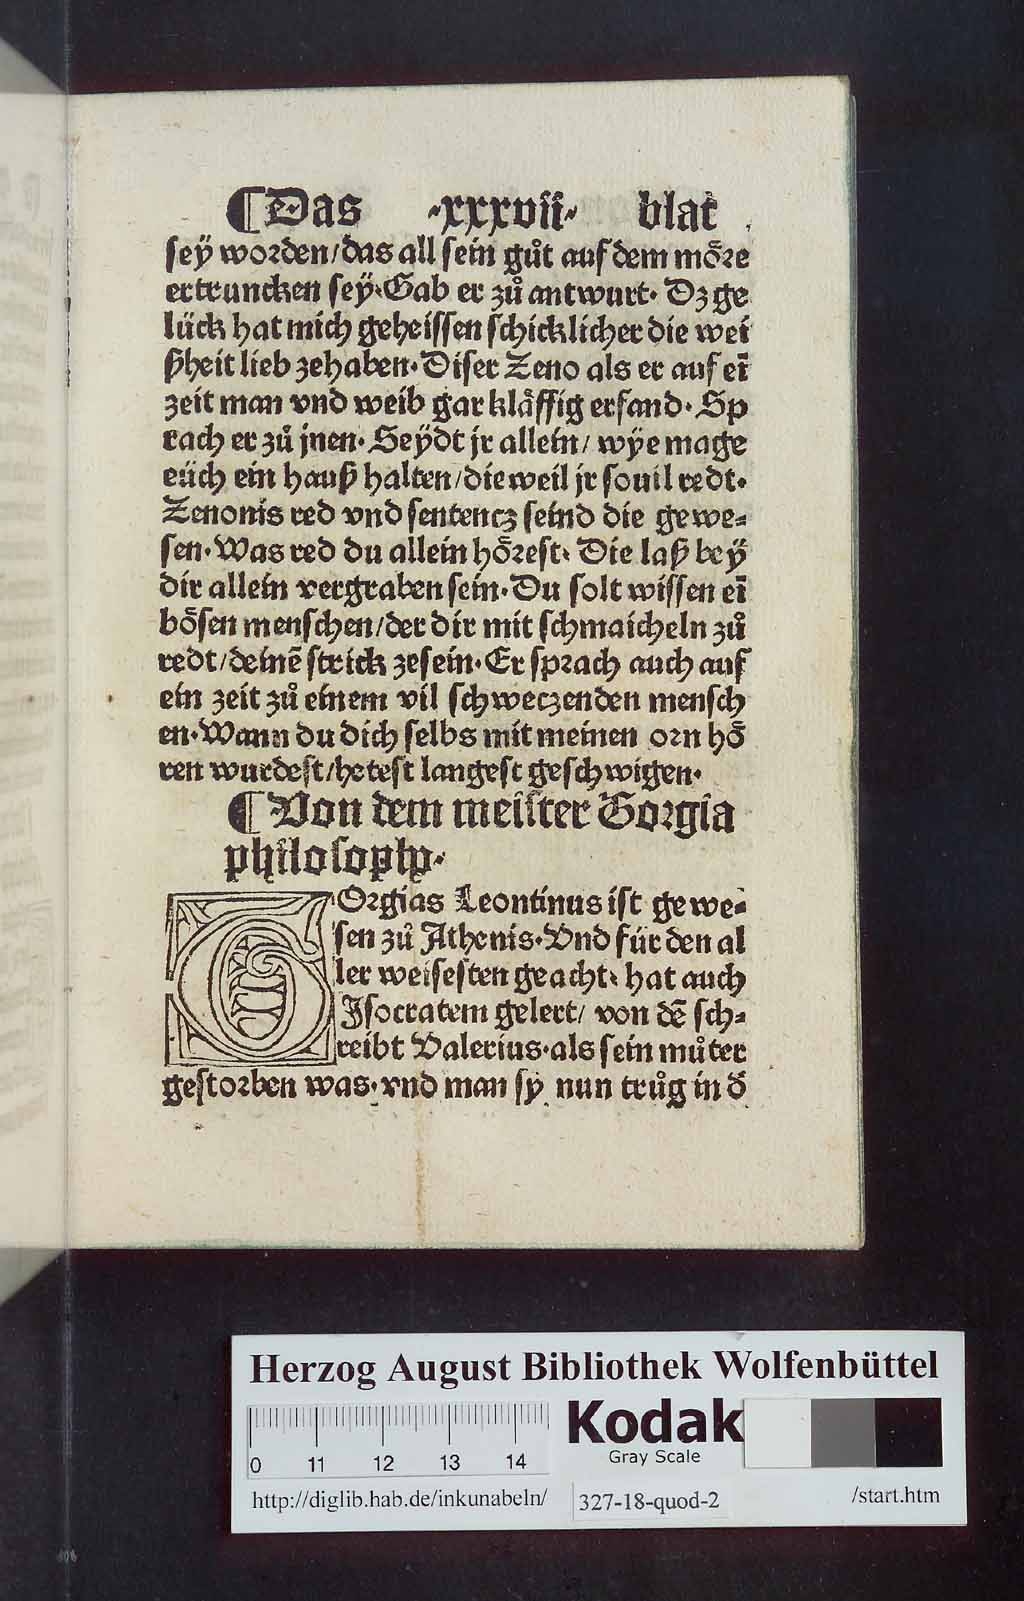 ¶Das ·xxxvii· blat
seÿ worden/das all sein gůt auf dem mo᷑re
ertruncken seÿ·Gab er zů antwurt· Dz ge
lück hat mich geheissen schicklicher die wei
ßheit lieb zehaben·Diser Zeno als er auf eī
zeit man vnd weib gar kläffig erfand· Sp
rach er zů jnen· Seÿdt jr allein/ wÿe mage
eüch ein hauß halten/dieweil jr souil redt·
Zenonis red vnd sentencz seind die gewe⸗
sen·Was red du allein hörest· Die laß beÿ
dir allein vergraben sein·Du solt wissen eī
bösen menschen/der dir mit schmaicheln zů
redt/deinē strick zesein·Er sprach auch auf
ein zeit zů einem vil schweczenden mensch
en·Wann du dich selbs mit meinen orn hö
ren wurdest/hetest langest geschwigen·
¶Von dem meister Gorgia
philosopho·
GOrgias Leontinus ist gewe⸗
sen zů Athenis·Vnd für den al
ler weisesten geacht· hat auch
Jsocratem gelert/ von dē sch⸗
reibt Valerius·als sein můter
gestorben was·vnd man sy nun trůg in d̕
Herzog August Bibliothek Wolfenbüttel
0 11 12 13 14
Kodak
Gray Scale
http://diglib.hab.de/inkunabeln/ 327-18-quod-2 /start.htm